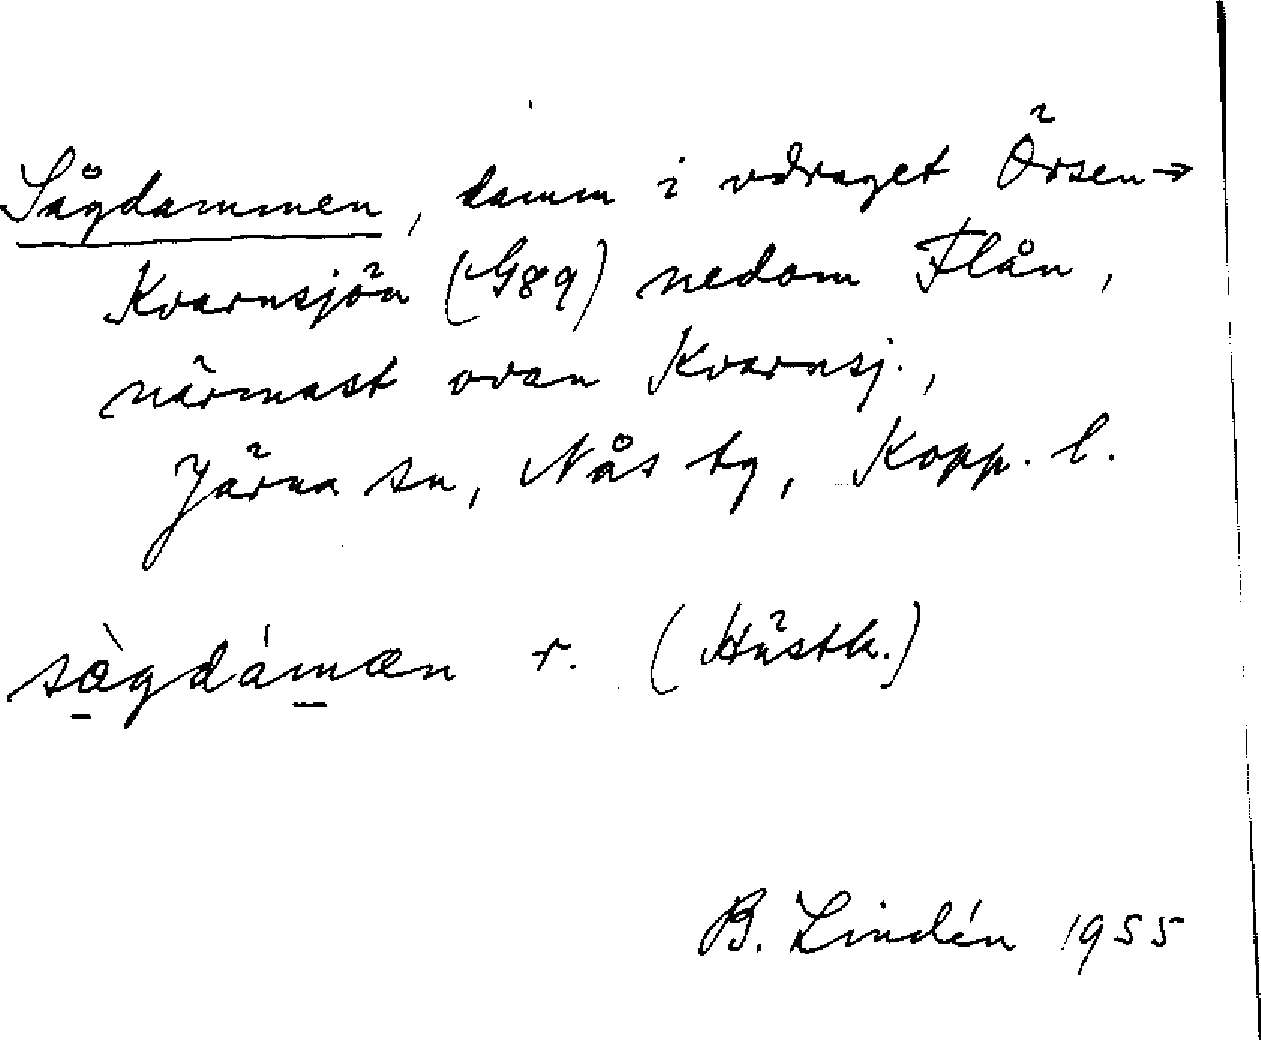 Sågdammen, damm i vdraget Örsen→
Kvarnsjön (G89) nedom Flån,
närmast ovan Kvarnsj.,
Järna sn, Nås tg, Kopp. l.
sàgdámæn r. (Hästk.)
B. Lindén 1955